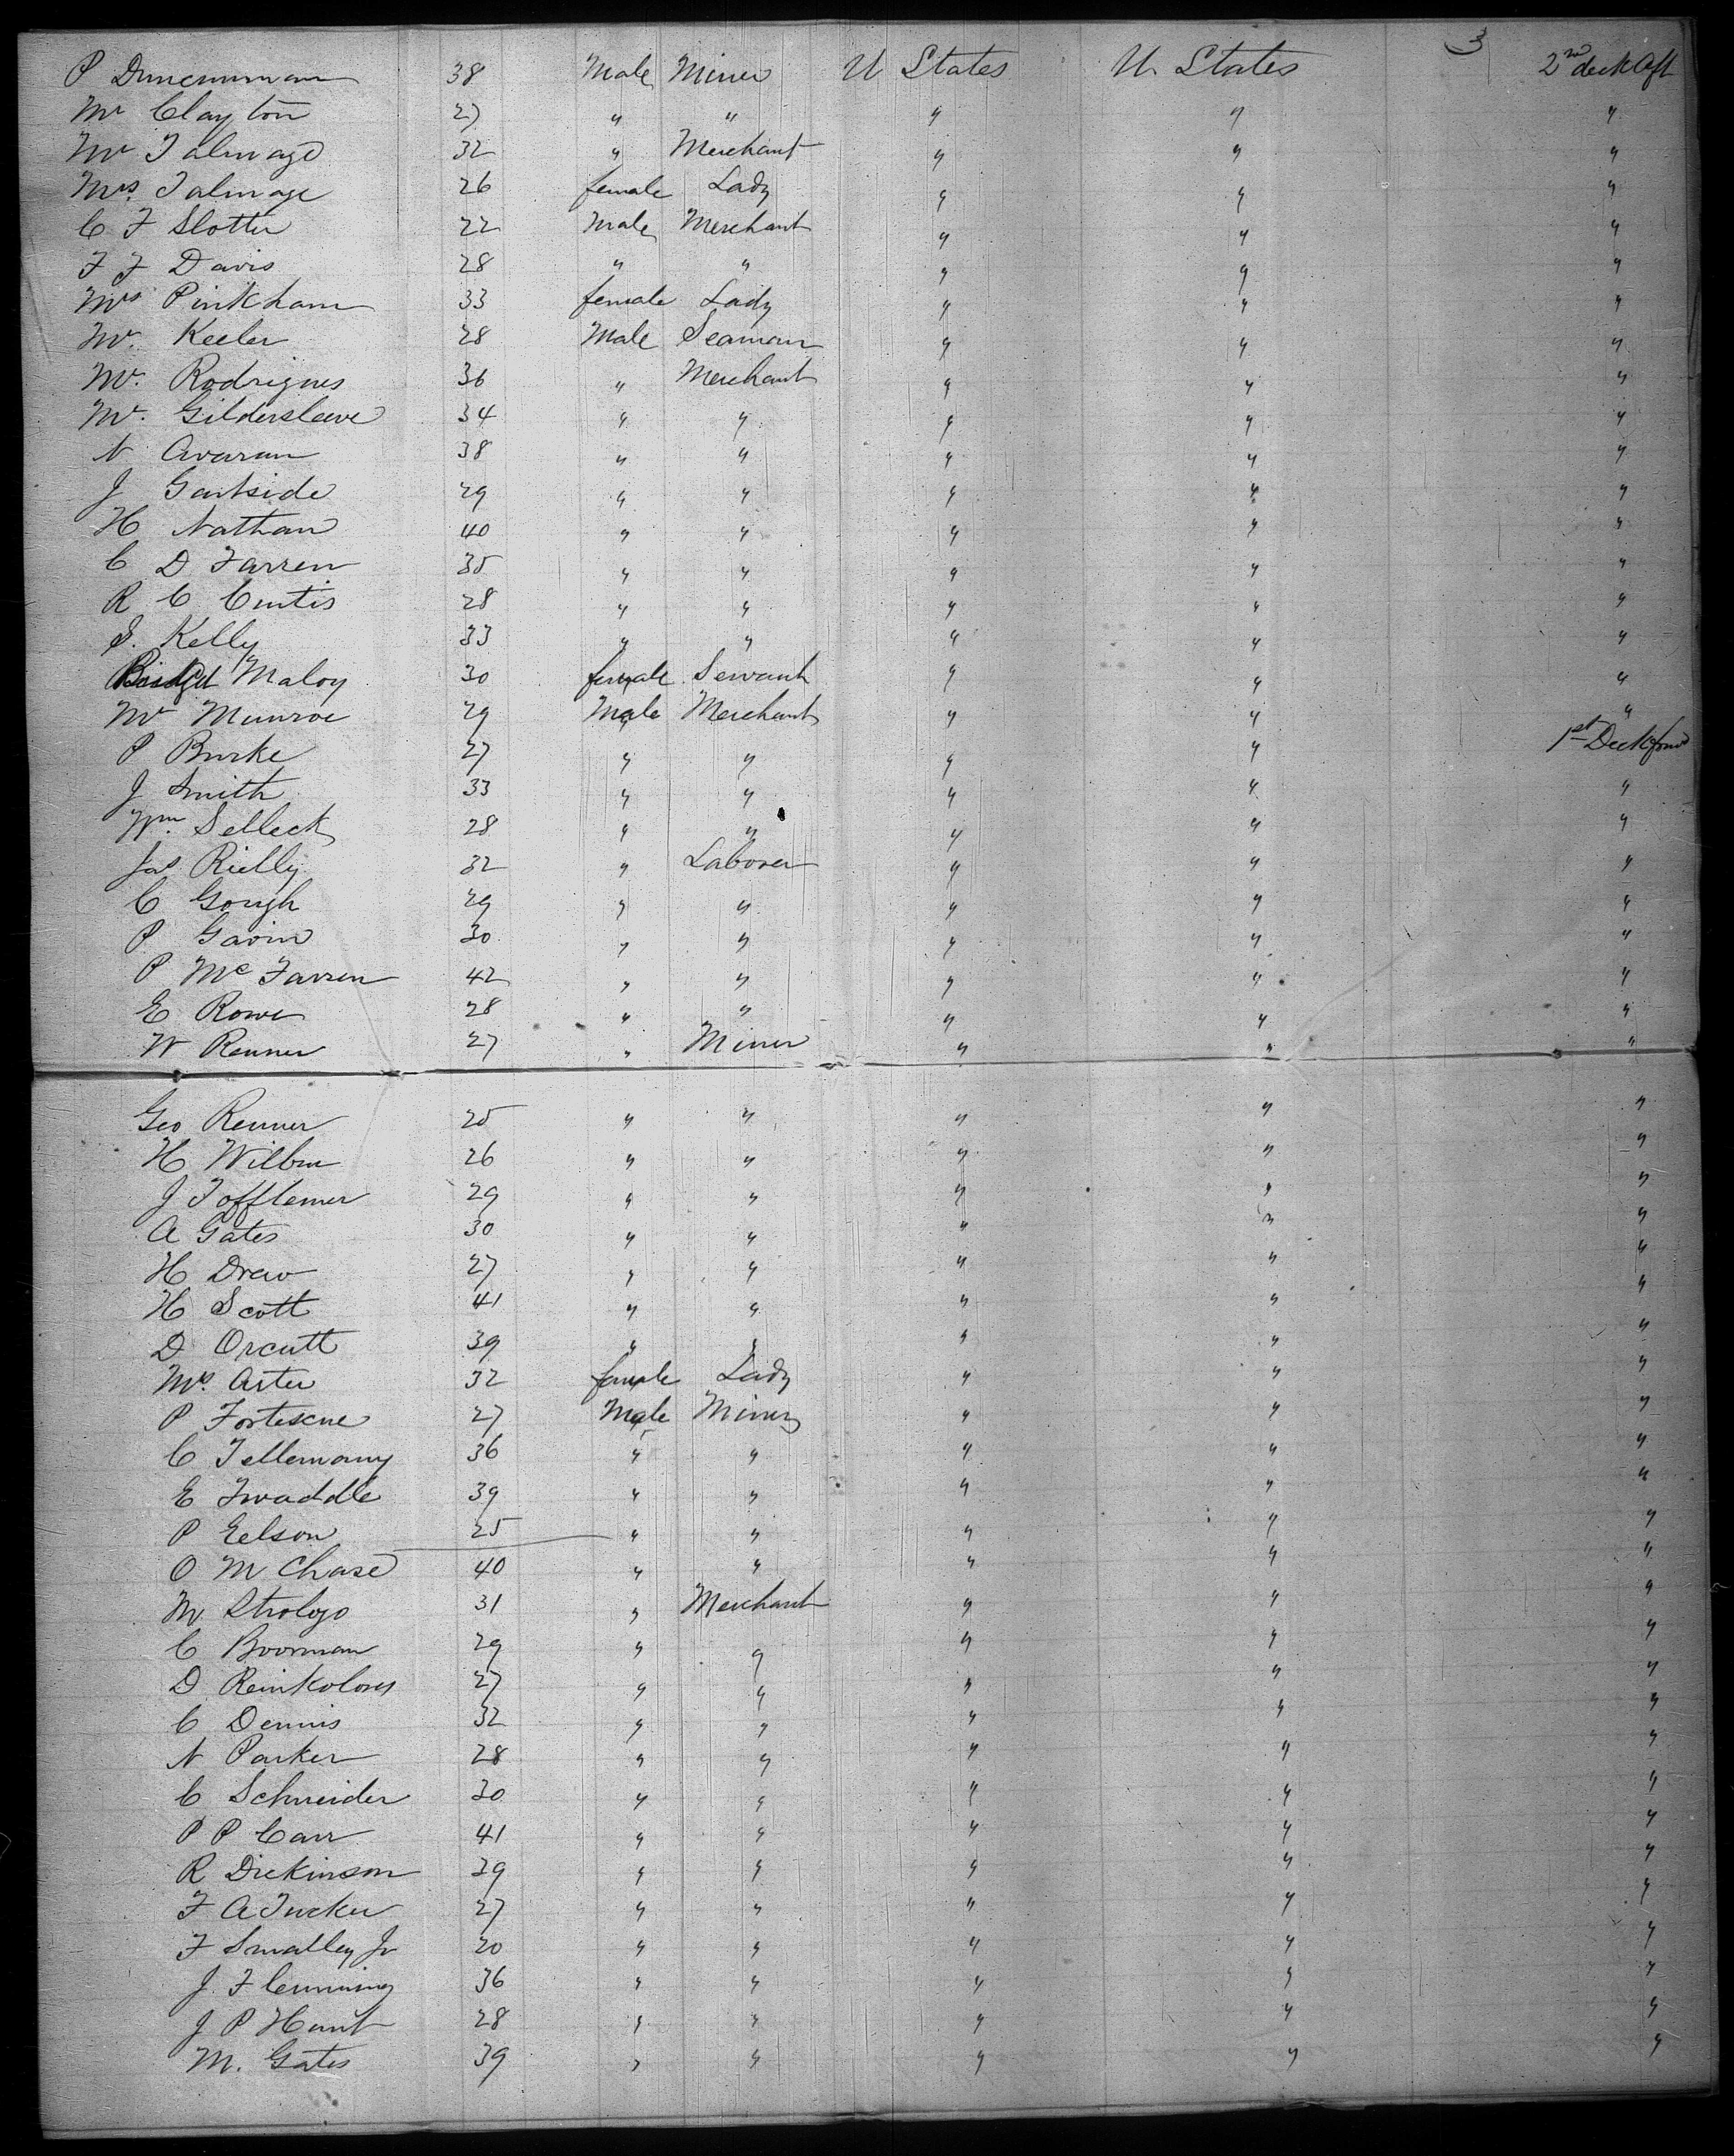 3
P Dunenumam 38 Male Miner U States U. States 2nd deck Aft
Mr Clayton 27 " " " " "
Mr Talmage 32 " Merchant " " "
Mrs. Talmage 26 female Lady " " "
C F Slotter 22 Male Merchant " " "
F F Davis 28 " " " " "
Mrs Pinkham 33 female Lady " " "
Mr. Keeler 28 Male Seaman " " "
Mr. Rodrigues 36 " Merchant " " "
Mr. Gildersleeve 34 " " " " "
N Avaram 38 " " " " "
J Gartside 29 " " " " "
H Nathan 40 " " " " "
C D Farren 35 " " " " "
R C Curtis 28 " " " " "
S. Kelly 33 " " " " "
Bridget Maloy 30 female Servant " " "
Mr Munroe 29 Male Merchant " " "
P Burke 27 " " " " 1st Deck forwd
J Smith 33 " " " " "
Wm. Selleck 28 " " " " "
Jas Rielly 32 " Laborer " " "
C Gough 29 " " " " "
P Gavin 30 " " " " "
P Mc Farren 42 " " " " "
E Rowe 28 " " " " "
W Renner 27 " Miner " " "
Geo Renner 25 " " " " "
H Wilbur 26 " " " " "
J Tofflemer 29 " " " " "
A Gates 30 " " " " "
H Drew 27 " " " " "
H Scott 41 " " " " "
D Orcutt 39 " " " " "
Mrs. Aster 32 female Lady " " "
P Fortescue 27 Male Miner " " "
C Tellemany 36 " " " " "
E Twaddle 39 " " " " "
P Eelson 25 " " " " "
O M Chase 40 " " " " "
M. Strologo 31 " Merchant " " "
C Boorman 29 " " " " "
D 27 " " " " "
C Dennis 32 " " " " "
N Parker 28 " " " " "
C Schneider 30 " " " " "
P P Carr 41 " " " " "
R Dickinson 29 " " " " "
F A Tucker 27 " " " " "
F Smalley Jr 20 " " " " "
J. Flemming 36 " " " " "
J P Hunt 28 " " " " "
M. Gates 39 " " " " "